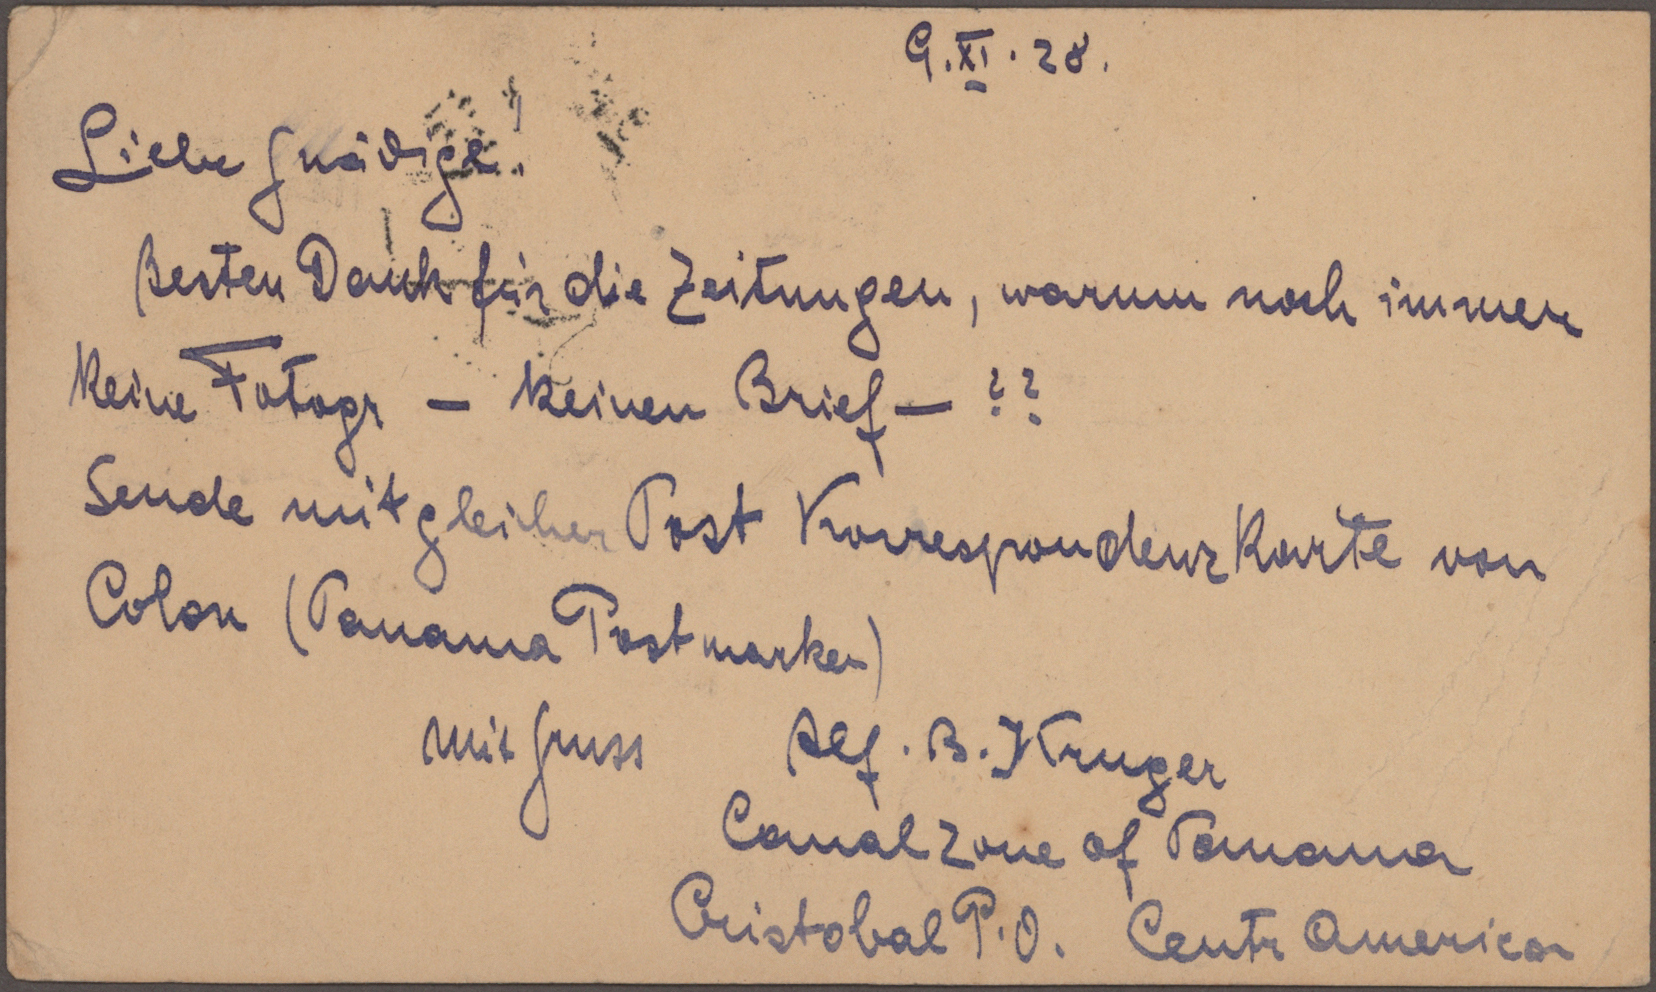 9.XI.28.
Liebe Gnädige!
Besten Dank für die Zeitungen, warum noch immer
keine Fotogr — keinen Brief — ??
Sende mit gleicher Post Korrespondenzkarte von
Colon (Panama Postmarken)
Mit Gruss Alf. B. Kruger
Canal Zone of Panama
Cristobal P.O. Centr America